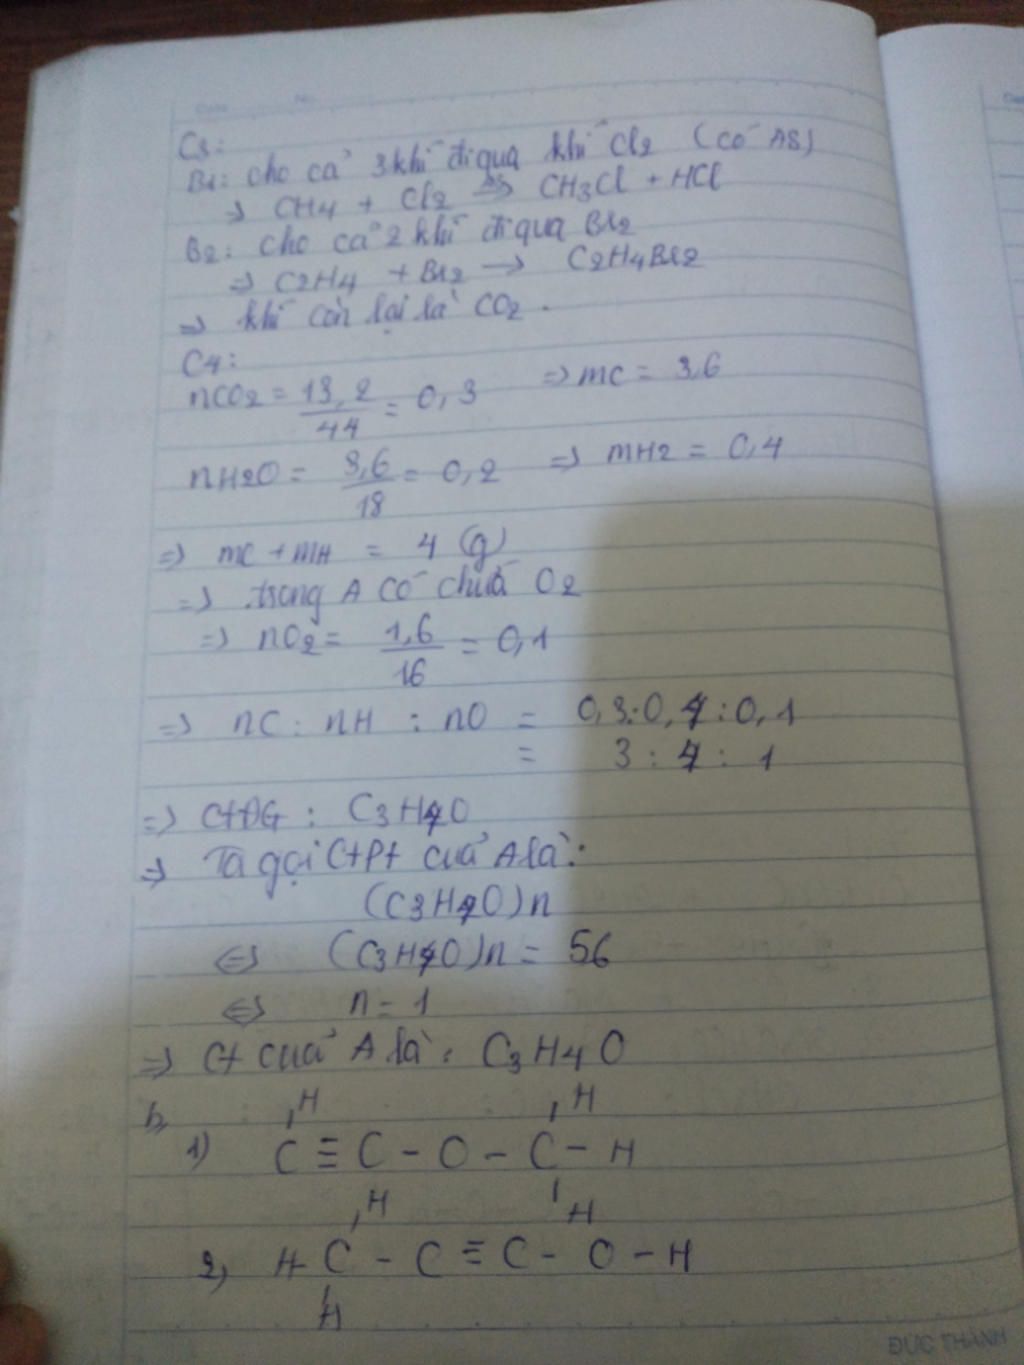 C3:
B1: cho cả 3 khí đi qua khí Cl2 (có AS)
=> CH4 + Cl2 AS=> CH3Cl + HCl
B2: cho cả 2 khí đi qua Br2
=> C2H4 + Br2 -> C2H4Br2
=> khí còn lại là CO2.
C4:
nCO2 = 13,2/44 = 0,3 => mC = 3,6
nH2O = 3,6/18 = 0,2 => mH2 = 0,4
=> mC + mH = 4 (g)
=> trong A có chứa O2
=> nO2 = 1,6/16 = 0,1
=> nC : nH : nO = 0,3:0,4:0,1
= 3 : 4 : 1
=> CTĐG : C3H4O
=> Ta gọi CTPT của A là:
(C3H4O)n
<=> (C3H4O)n = 56
<=> n = 1
=> CT của A là: C3H4O
b,
H H
1) C ≡ C - O - C - H
H H
2, H - C - C ≡ C - O - H
H
ĐỨC THÀNH